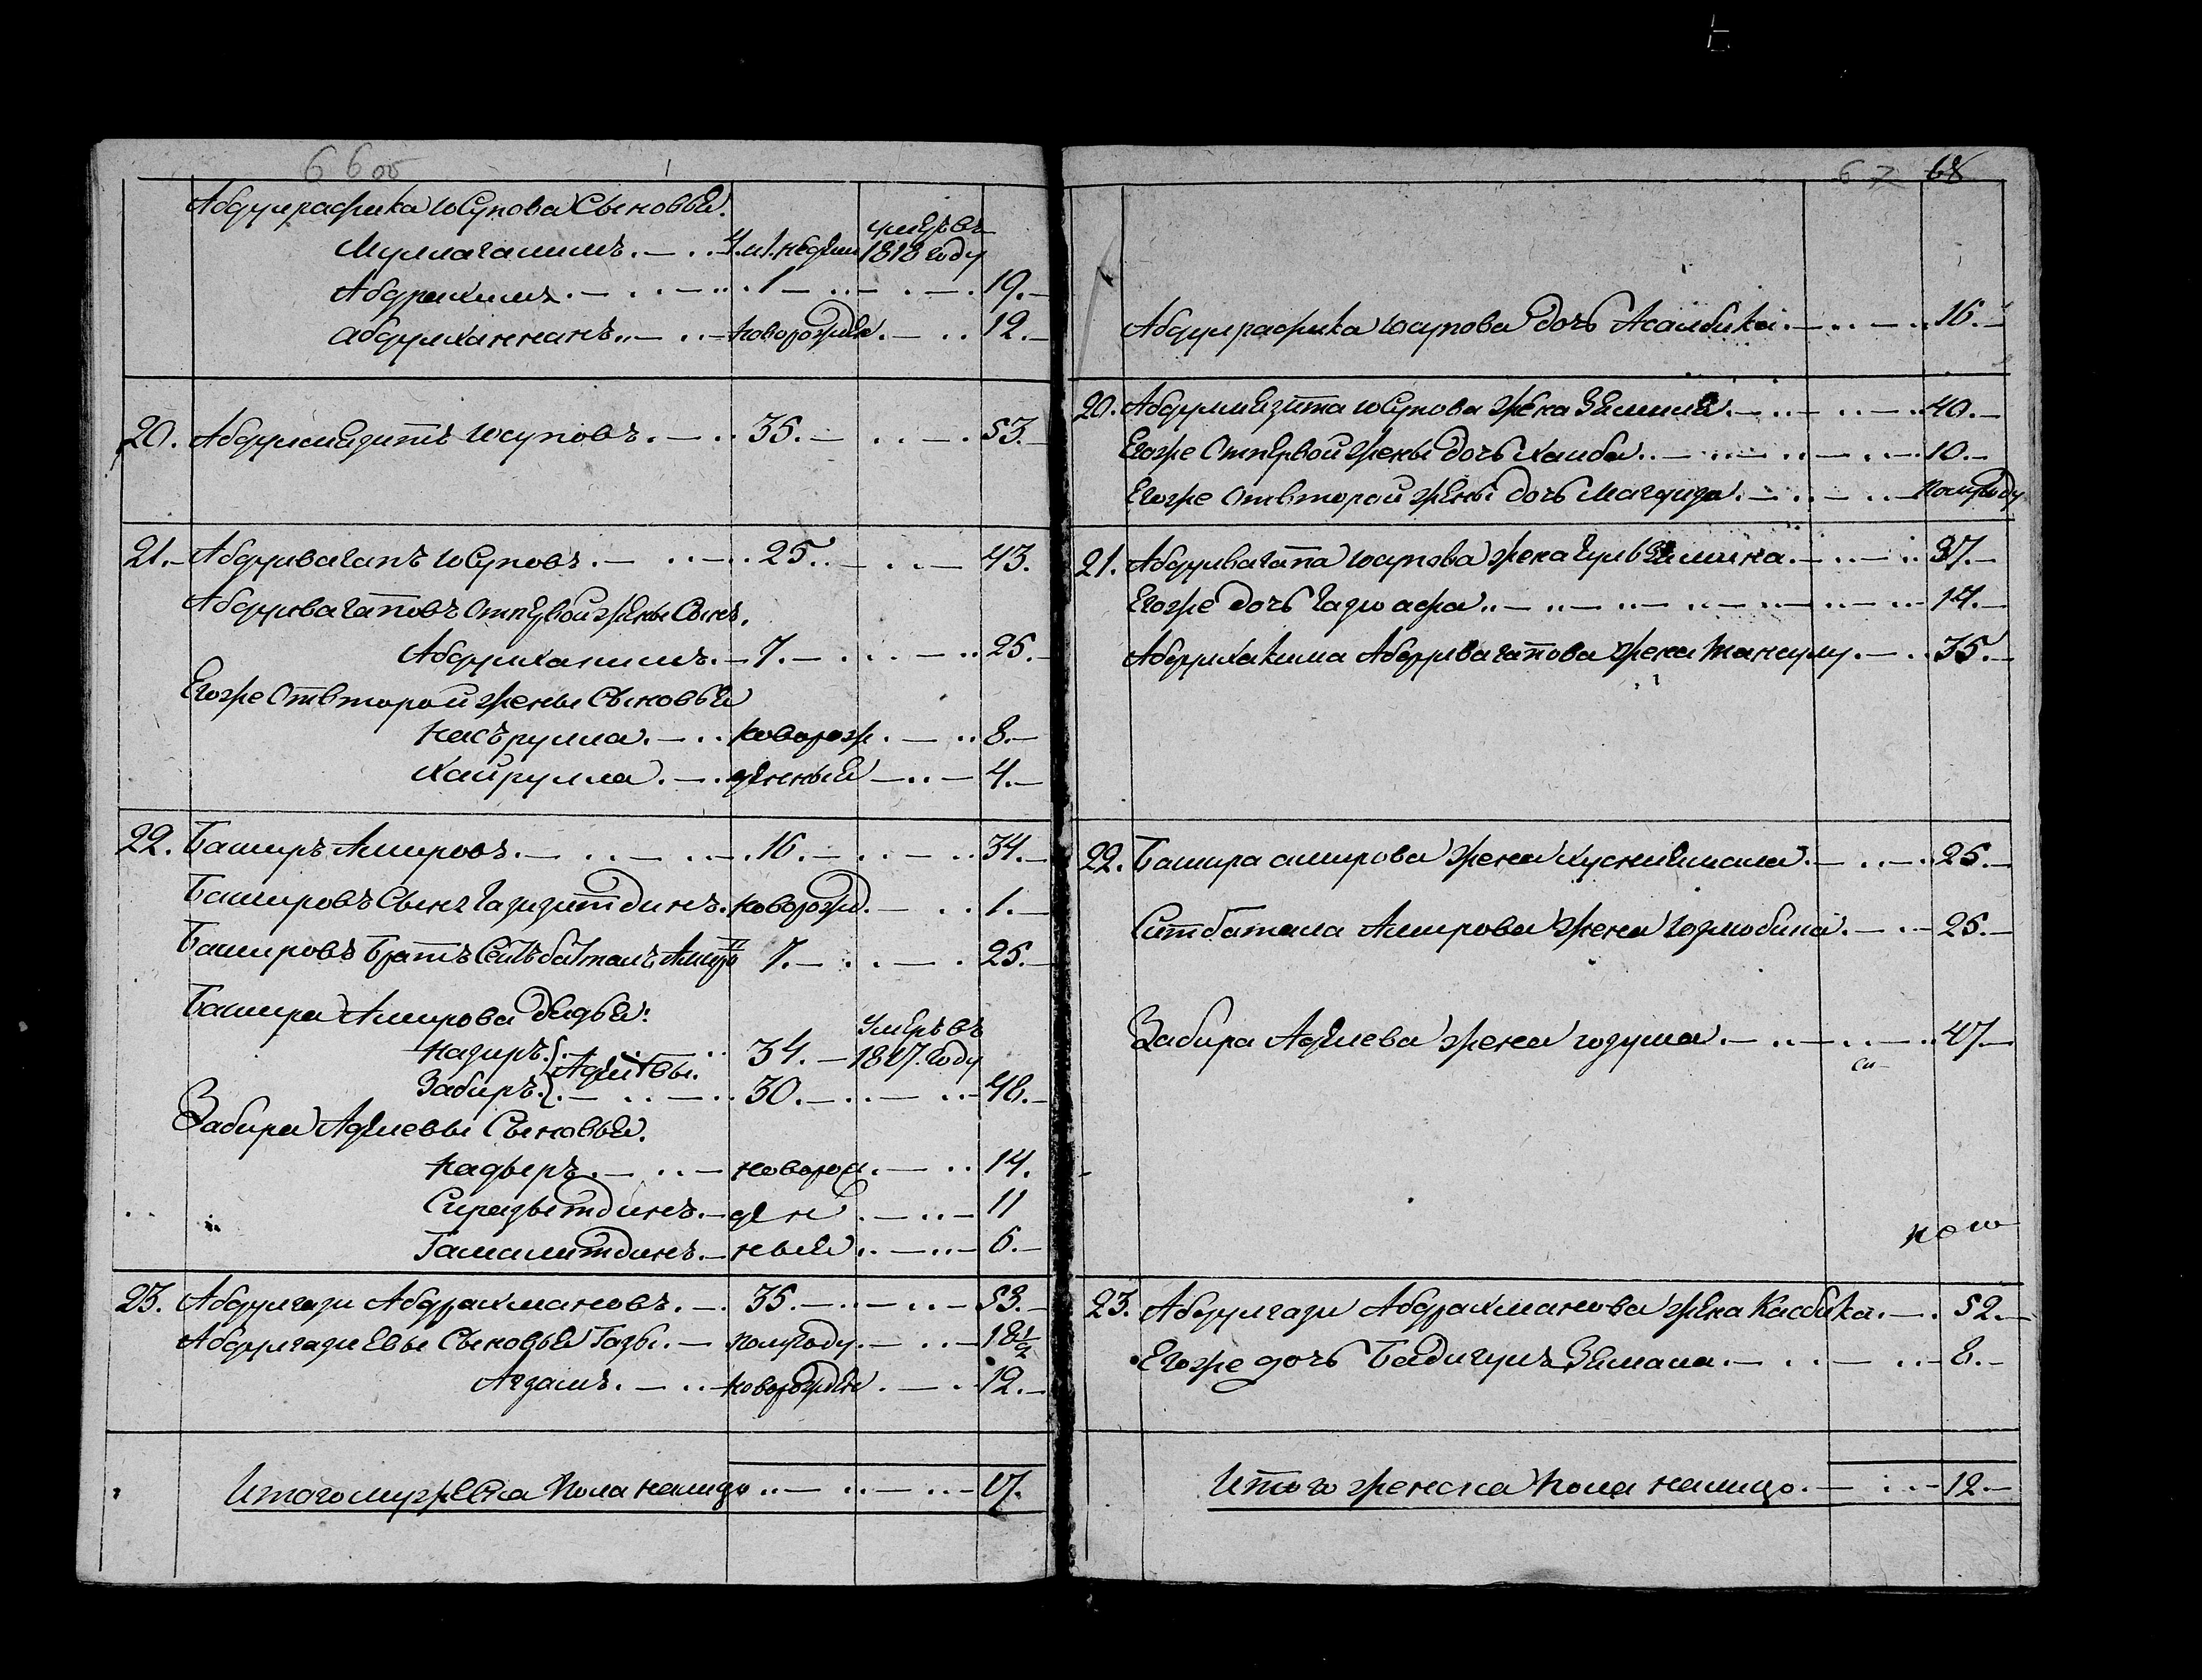 66 об
Абдулрафика юсупова Сыновья.
Муллагалимъ. 4.и1.недели умеръ въ 1818 году
Абдрахимъ. 1 19.
абдулханнанъ. новорожден. 12.
20. Абдулмязитъ юсуповъ. 35. 53.
21. Абдулвагапъ юсуповъ. 25. 43.
Абдулвагаповъ отпервой жены Сынъ.
Абдулхакимъ. 7. 25.
Егоже отвторой жены Сыновья
насърулла. новорож 8.
хайрулла. денныя 4.
22. Баширъ Амировъ. 16. 34.
Башировъ Сынъ Газизитдинъ. новорожд. 1.
Башировъ братъ Сеитъбатталъ Амиро 7. 25.
Башира Амирова дядья:
надиръ. 34. умеръ въ 1827. году
Адилевы.
Забиръ. 30. 48.
Забира Адилевы Сыновья.
надыръ. новоро 14.
Сиразытдинъ. ден 11
Гамалитдинъ. ныя 6.
23. Абдулгази Абдрахмановъ. 35. 53.
Абдулгазиевы Сыновья Газы. полугоду. 18½
Агзамъ. новорожден 12.
Итого мужеска пола налицо 17.
67 68
Абдулрафика юсупова дочь Асылбика. 16.
20. Абдулмязита юсупова жена Зямиля. 40.
Егоже отпервой жены дочь хамба. 10.
Егоже отвторой жены дочь Магруза. полугоду
21. Абдулвагапа юсупова жена гульзямина. 37.
Егоже дочь газюафа. 17.
Абдулхакима Абдулвагапова жена танкулу. 35.
22. Башира амирова жена хуснижамала. 25.
Ситбатала Амирова жена гюлюбина. 25.
Забира Адилева жена гозума. 47.
23. Абдулгази Абдрахманова жена Касбика. 52.
Егоже дочь Бадигулъзямала. 8.
Итого женска пола налицо. 12.